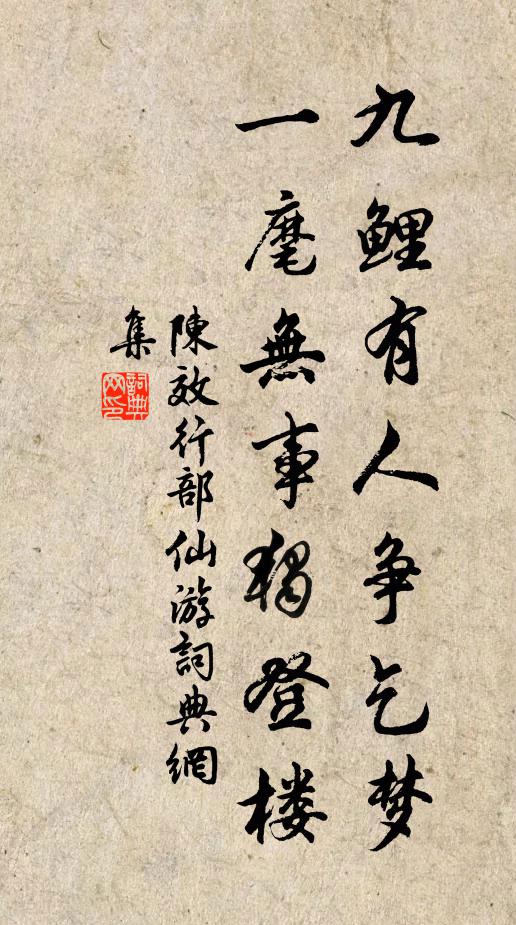 九鲤有人争乞梦
一麾無事獨登楼
陳效行部仙游詞典網
集
詞典网印